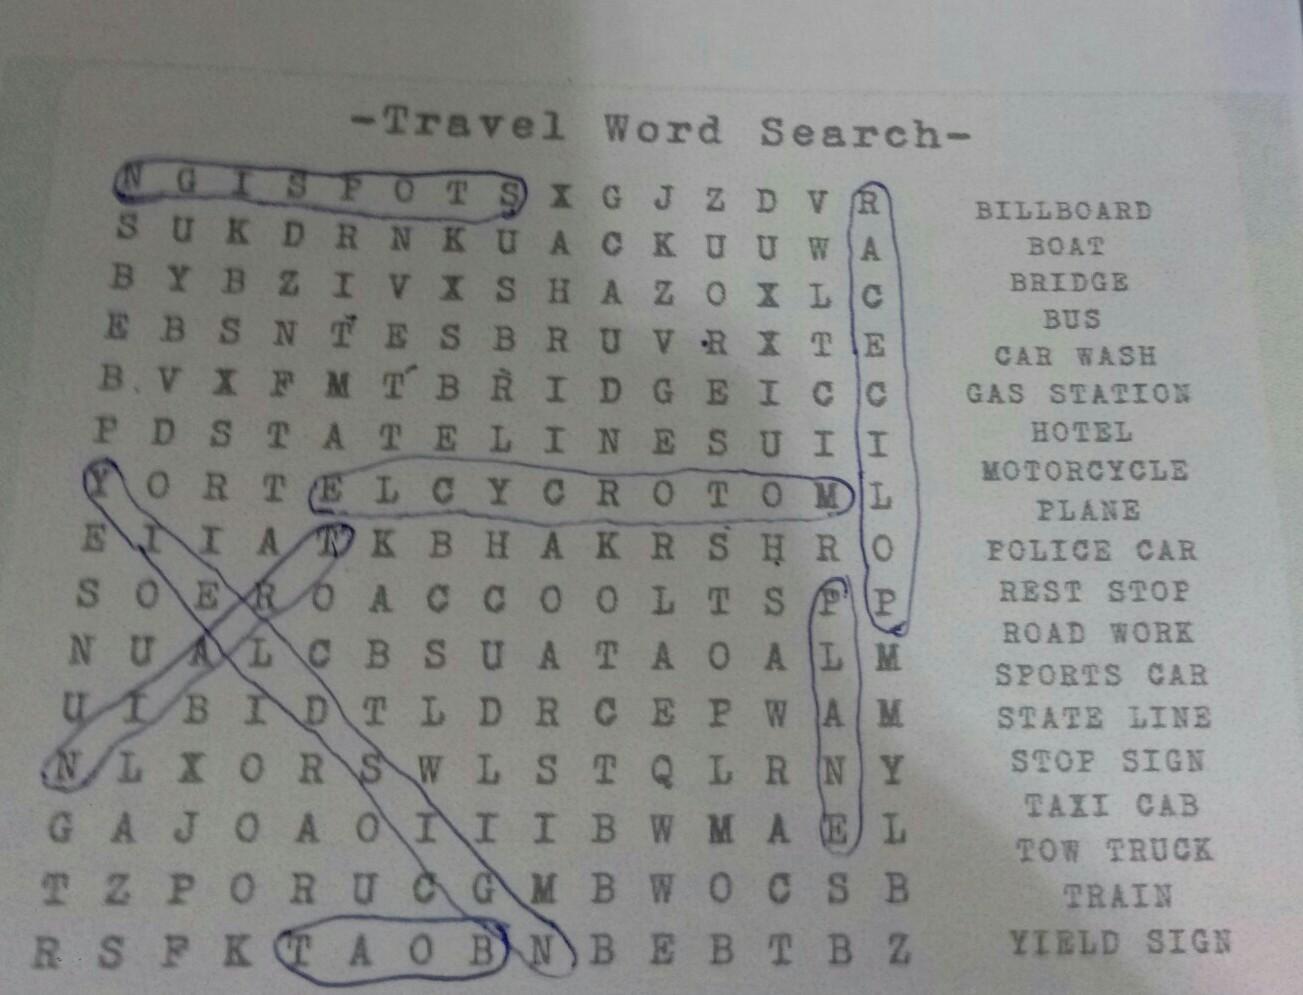 -Travel Word Search-
N G I S P O T S X G J Z D V R
S U K D R N K U A C K U U W A
B Y B Z I V X S H A Z O X L C
E B S N T E S B R U V R X T E
B V X F M T B R I D G E I C C
P D S T A T E L I N E S U I I
Y O R T E L C Y C R O T O M L
E I I A T K B H A K R S H R O
S O E R O A C C O O L T S P P
N U A L C B S U A T A O A L M
U I B I D T L D R C E P W A M
N L X O R S W L S T Q L R N Y
G A J O A O I I I B W M A E L
T Z P O R U C G M B W O C S B
R S F K T A O B N B E B T B Z
BILLBOARD
BOAT
BRIDGE
BUS
CAR WASH
GAS STATION
HOTEL
MOTORCYCLE
PLANE
POLICE CAR
REST STOP
ROAD WORK
SPORTS CAR
STATE LINE
STOP SIGN
TAXI CAB
TOW TRUCK
TRAIN
YIELD SIGN